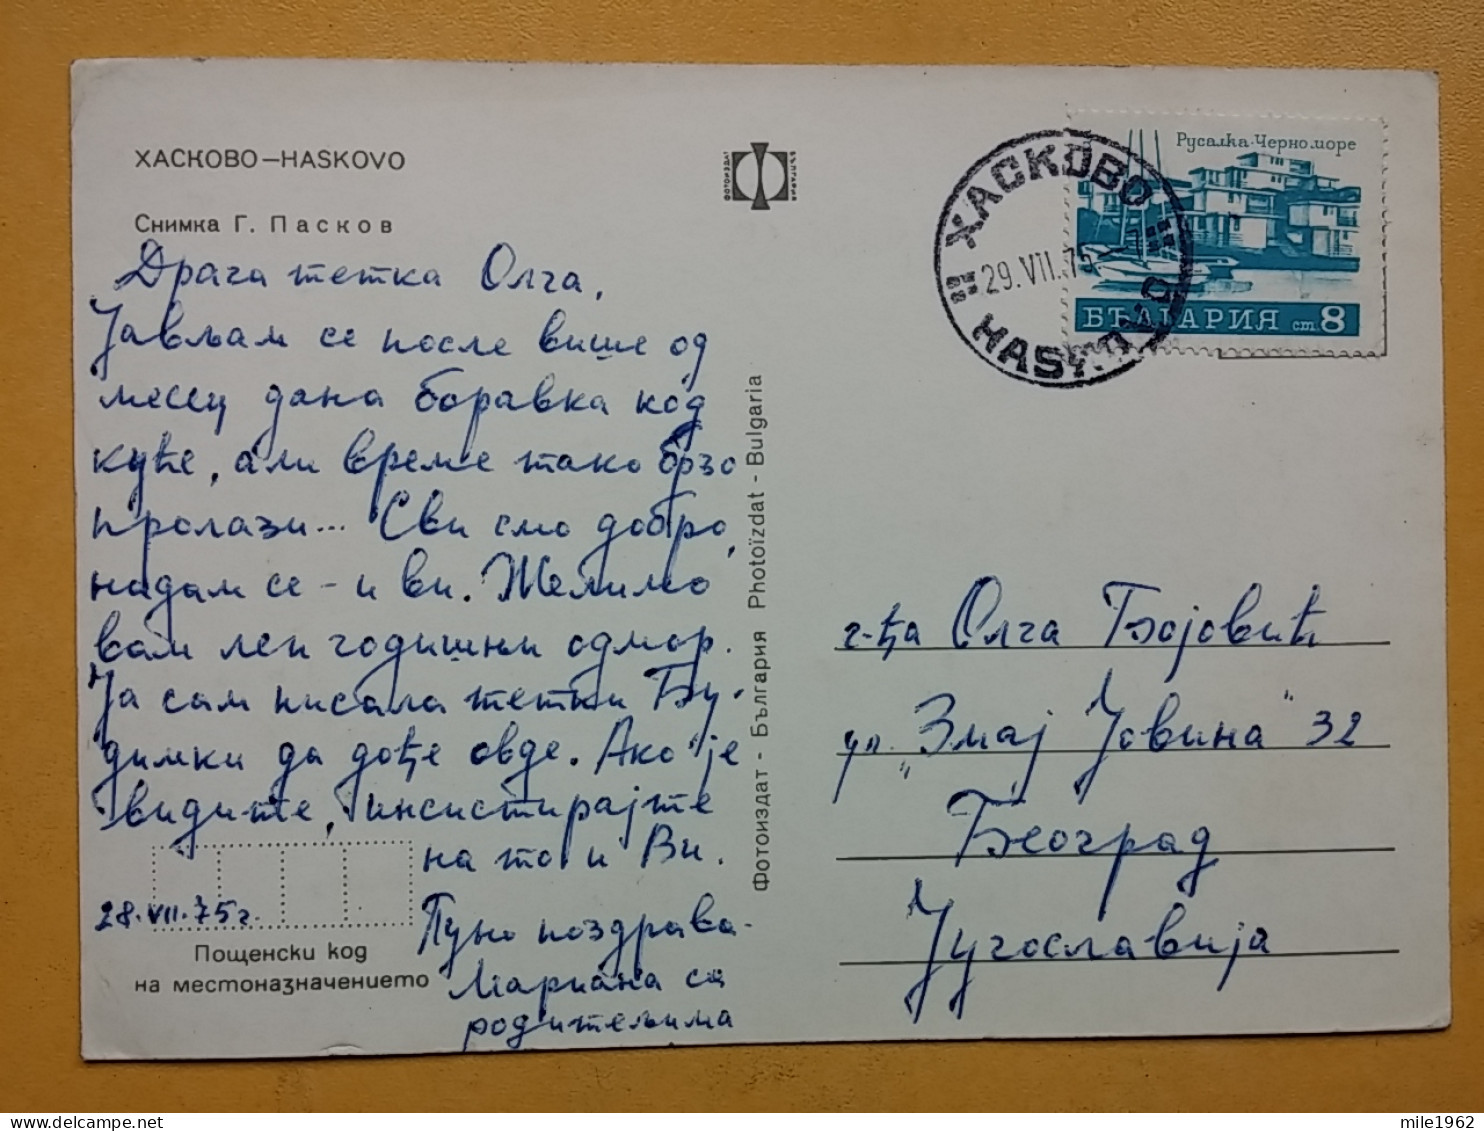 ХАСКОВО — HASKOVO
Снимка Г. Пасков
Драга тетка Олга,
Јављам се после више од
месец дана боравка код
куће, али време тако брзо
пролази... Сви смо добро,
надам се - и ви. Желимо
вам леп годишњи одмор.
Ја сам писала тетки Бу-
димки да дође овде. Ако је
видите, инсистирајте
на то и Ви.
28.VII.75г.
Пуно поздрава-
Мариана са
родитељима
Пощенски код
на местоназначението
ФОТОИЗДАТ
БЪЛГАРИЯ
Фотоиздат - България Photoïzdat - Bulgaria
ХАСКОВО
29.VII.75
HASKOVO
Русалка-Черно море
БЪЛГАРИЯ ст 8
г-ђа Олга Ђојовић
ул. „Змај Јовина" 32
Београд
Југославија
mile1962